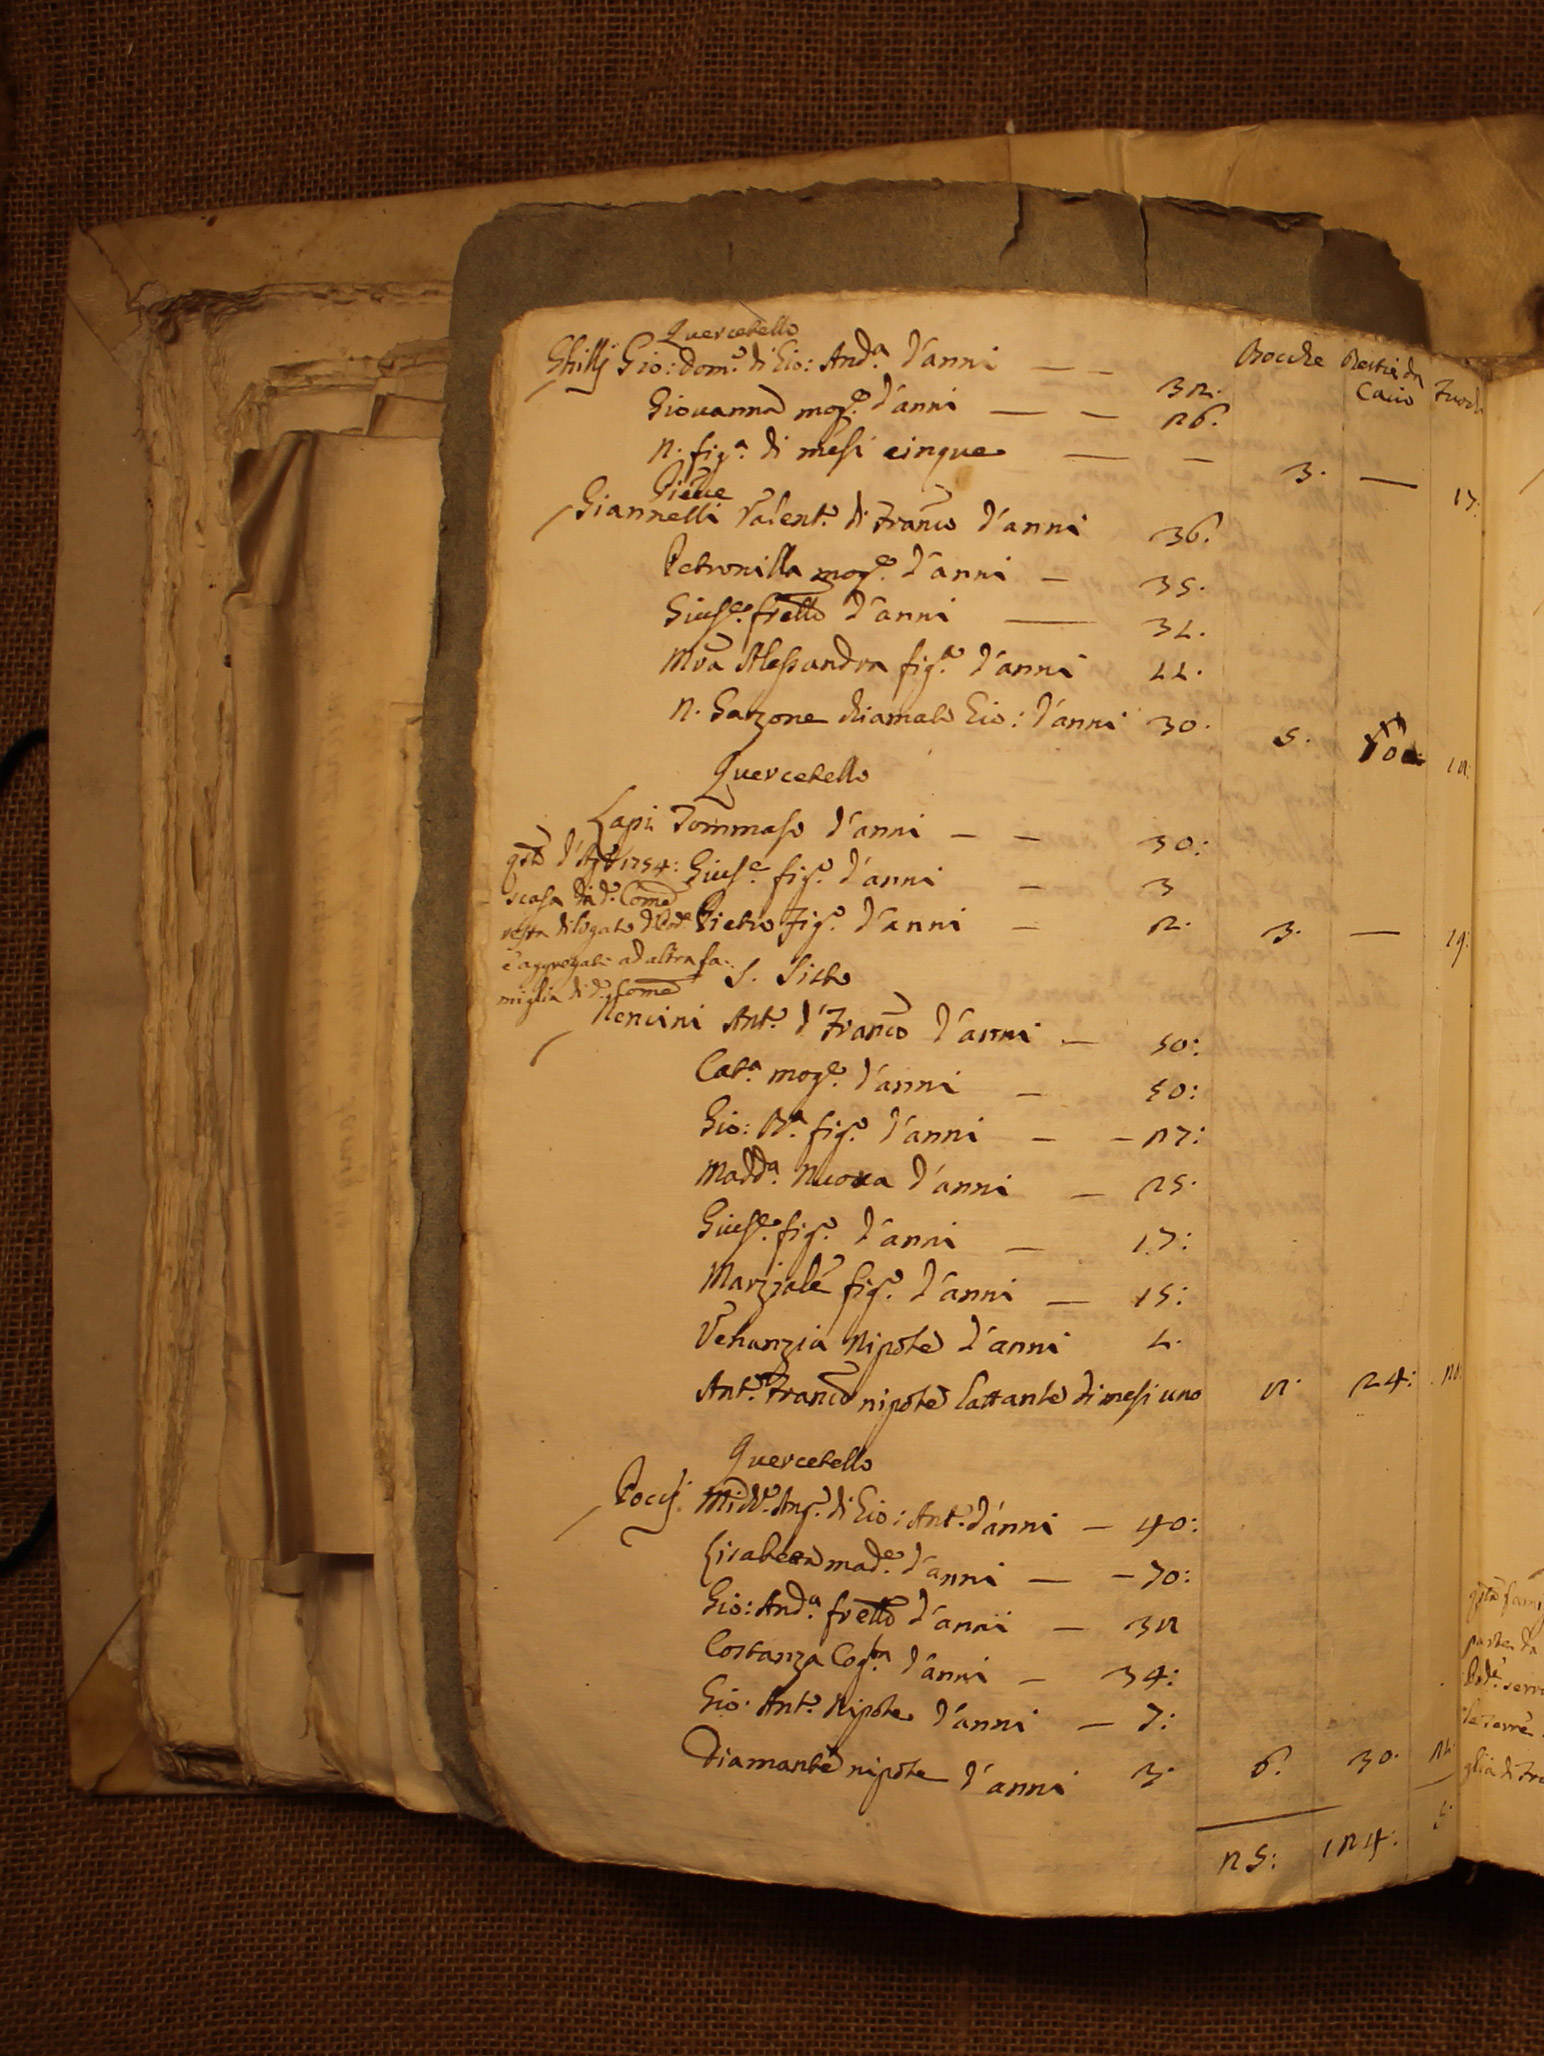 Quercetello
Bocche Bestie da Cacio Fuochi
Ghillj Gio: Dom.º di Gio: And.ª d'anni — — 32.
Giovanna mog.e d'anni — — 26.
N. fig.ª di mesi cinque — — 3. — 17:
Pieve
Giannelli Valent.º di Franc.º d'anni 36.
Petronilla mog.e d'anni — 35.
Gius.e frello d'anni — 31.
Mra Alessandra fig.ª d'anni 11.
N. Garzone chiamato Gio: d'anni 30. 5. 18:
Quercetello
Lapi Tommaso d'anni — — 30:
qsto d' 1754: Gius.e fig.º d'anni — 3
scasa di d.º Come
resta Pietro fig.º d'anni — 2. 3. — 19:
e aggregato ad altra fa:
miglia di d.º Come S. Sisto
Nencini Ant.º d'Franco d'anni — 50:
Cat.ª mog.e d'anni — 50:
Gio: B.ª fig.º d'anni — — 27:
Madd.ª Nuora d'anni — 25.
Gius.e fig.º d'anni — 17:
Marziale fig.º d'anni — 15:
Venanzia Nipote d'anni 1.
Ant.º Franco nipote lattante di mesi uno 8. 24: 20:
Quercetello
Poccj. Mich.e Ang.º di Gio: Ant.º d'anni — 40:
Lisabetta mad.e d'anni — — 70:
Gio: And.ª frello d'anni — 38
Costanza Cog.ta d'anni — 34:
Gio. Ant.º Nipote d'anni — 7:
Diamante nipote d'anni 3. 6. 30. 21:
25: 124: 5:
qsta fami
parte da
Pod.e serra
le terre
glia di Fra